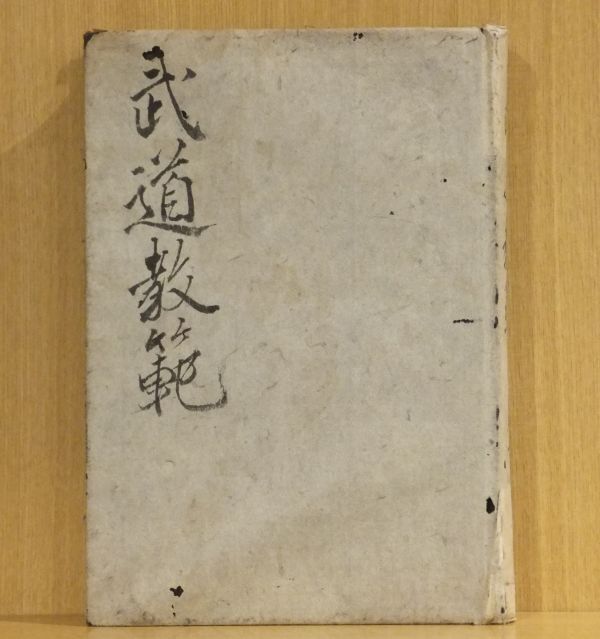 武道教範